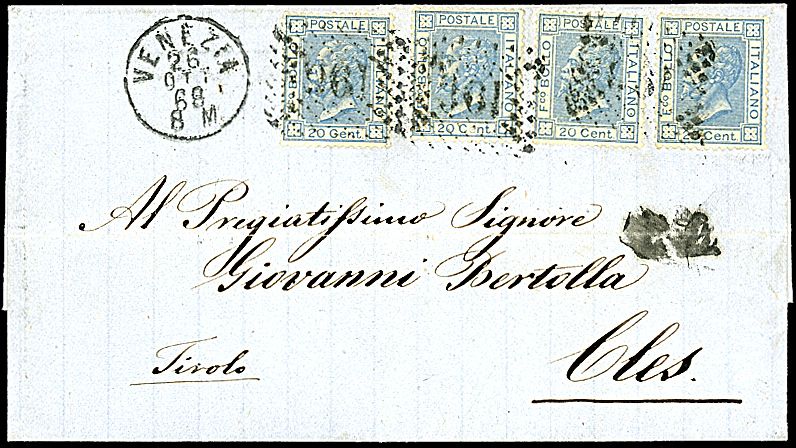 VENEZIA
26
OTT
68
8 M
POSTALE
F.co BOLLO
ITALIANO
20 Cent
POSTALE
BOLLO
ITALIANO
20 Cent
POSTALE
F.co BOLLO
ITALIANO
20 Cent
POSTALE
F.co BOLLO
ITALIANO
Cent
Al Pregiatissimo Signore
Giovanni Bertolla
Tirolo
Cles.